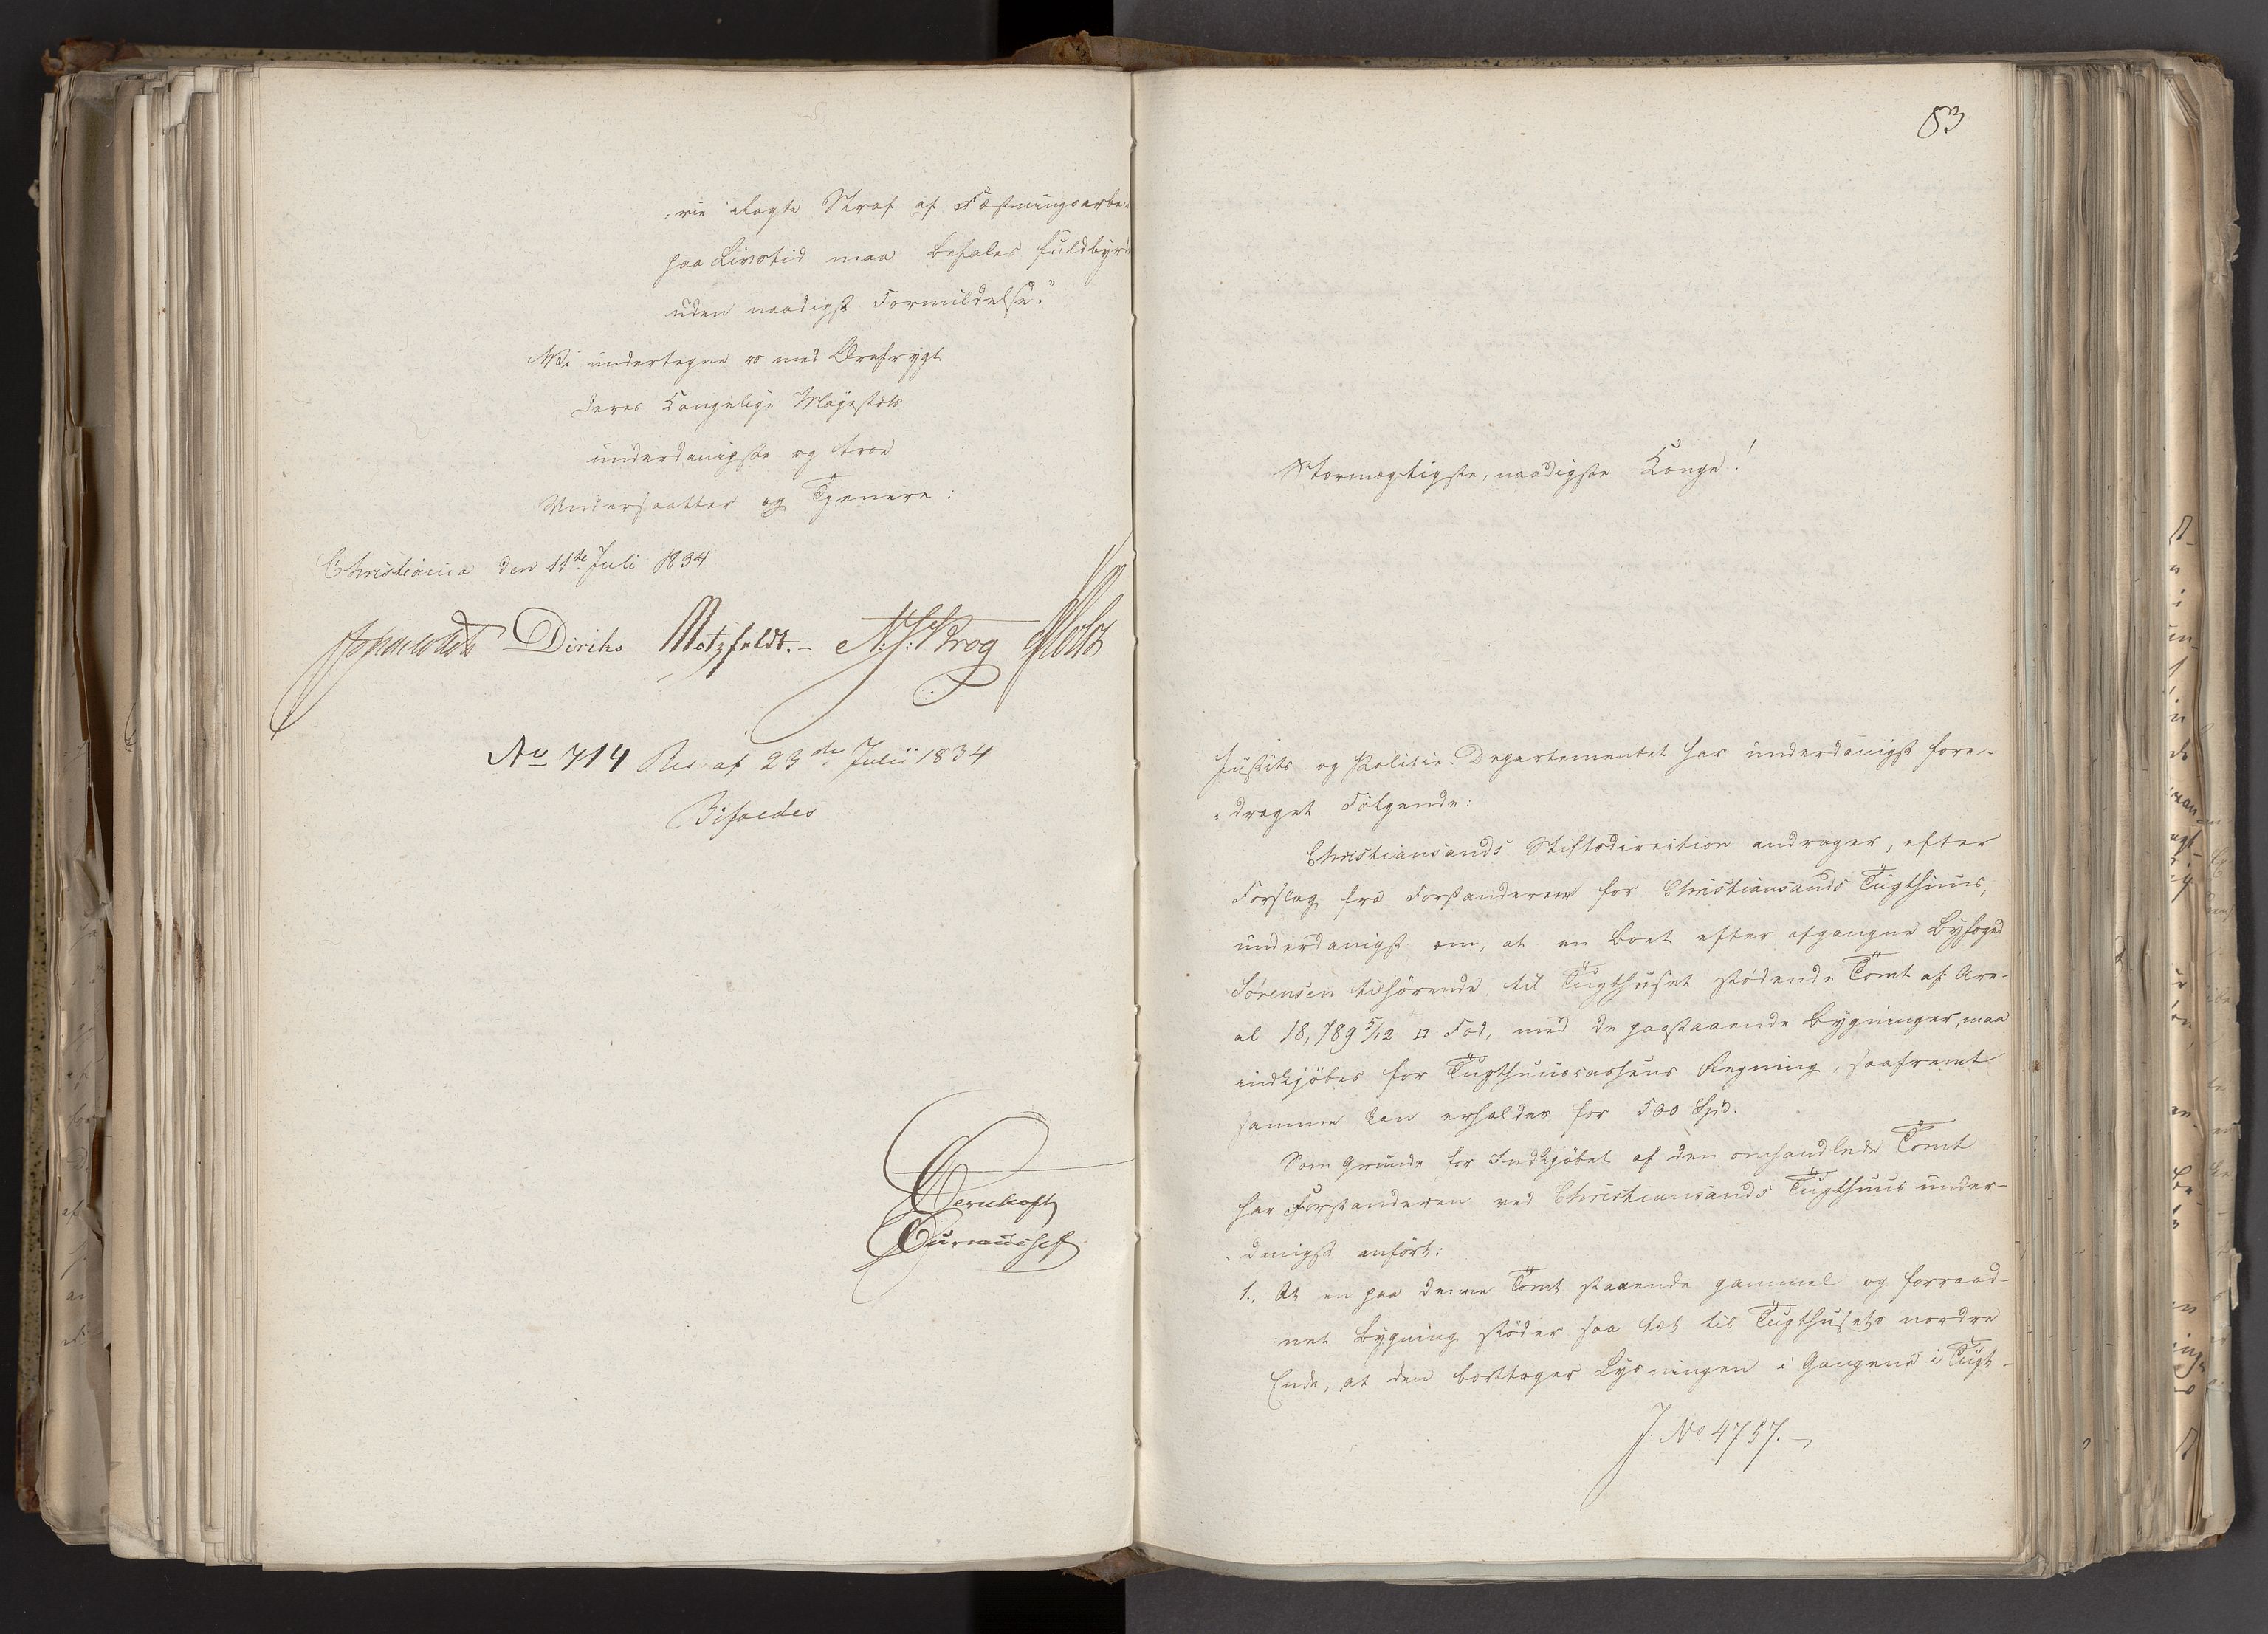 :rie ilagte Straf af Fæstningsarbei
paa Livstid maa befales fuldbyrd
uden naadigst Formildelse."
Vi undertegne os med Ærefrygt
Deres Kongelige Majestæts
underdanigste og troe
Undersaatter og Tjenere:
Christiania den 11te Juli 1834
Diriks Motzfeldt.- N:J:Krog Holst
No 714 Res. af 23de Julii 1834
Bifaldes
83
Stormægtigste, naadigste Konge!
Justits- og Politie-Departementet har underdanigst fore-
-draget Følgende:
Christiansands Stiftsdirection andrager, efter
Forslag fra Forstanderen for Christiansands Tugthuus,
underdanigst om, at en Boet efter afgangne Byfoged
Sørensen tilhørende, til Tugthuset stødende Tomt af Are-
al 18,789 5/12 □ Fod, med de paastaaende Bygninger, maa
indkjøbes for Tugthuuscassens Regning, saafremt
samme kan erholdes for 500 Spd.
Som Grunde for Indkjøbet af den omhandlede Tomt
har Forstanderen ved Christiansands Tugthuus under-
-danigst anført:
1., At en paa denne Tomt staaende gammel og forraad-
:net Bygning støder saa tæt til Tugthusets nordre
Ende, at den borttager Lysningen i Gangene i Tugt-
J. No. 4757.-